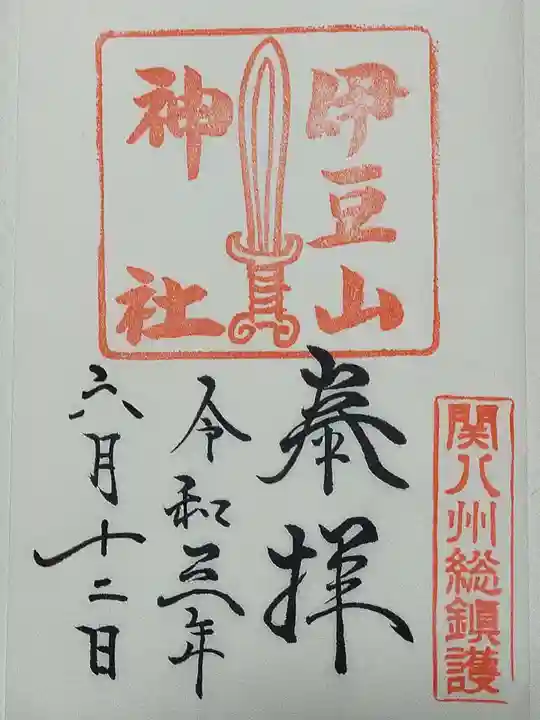 伊豆山
神社
関八州総鎮護
奉拝
令和三年
六月十二日